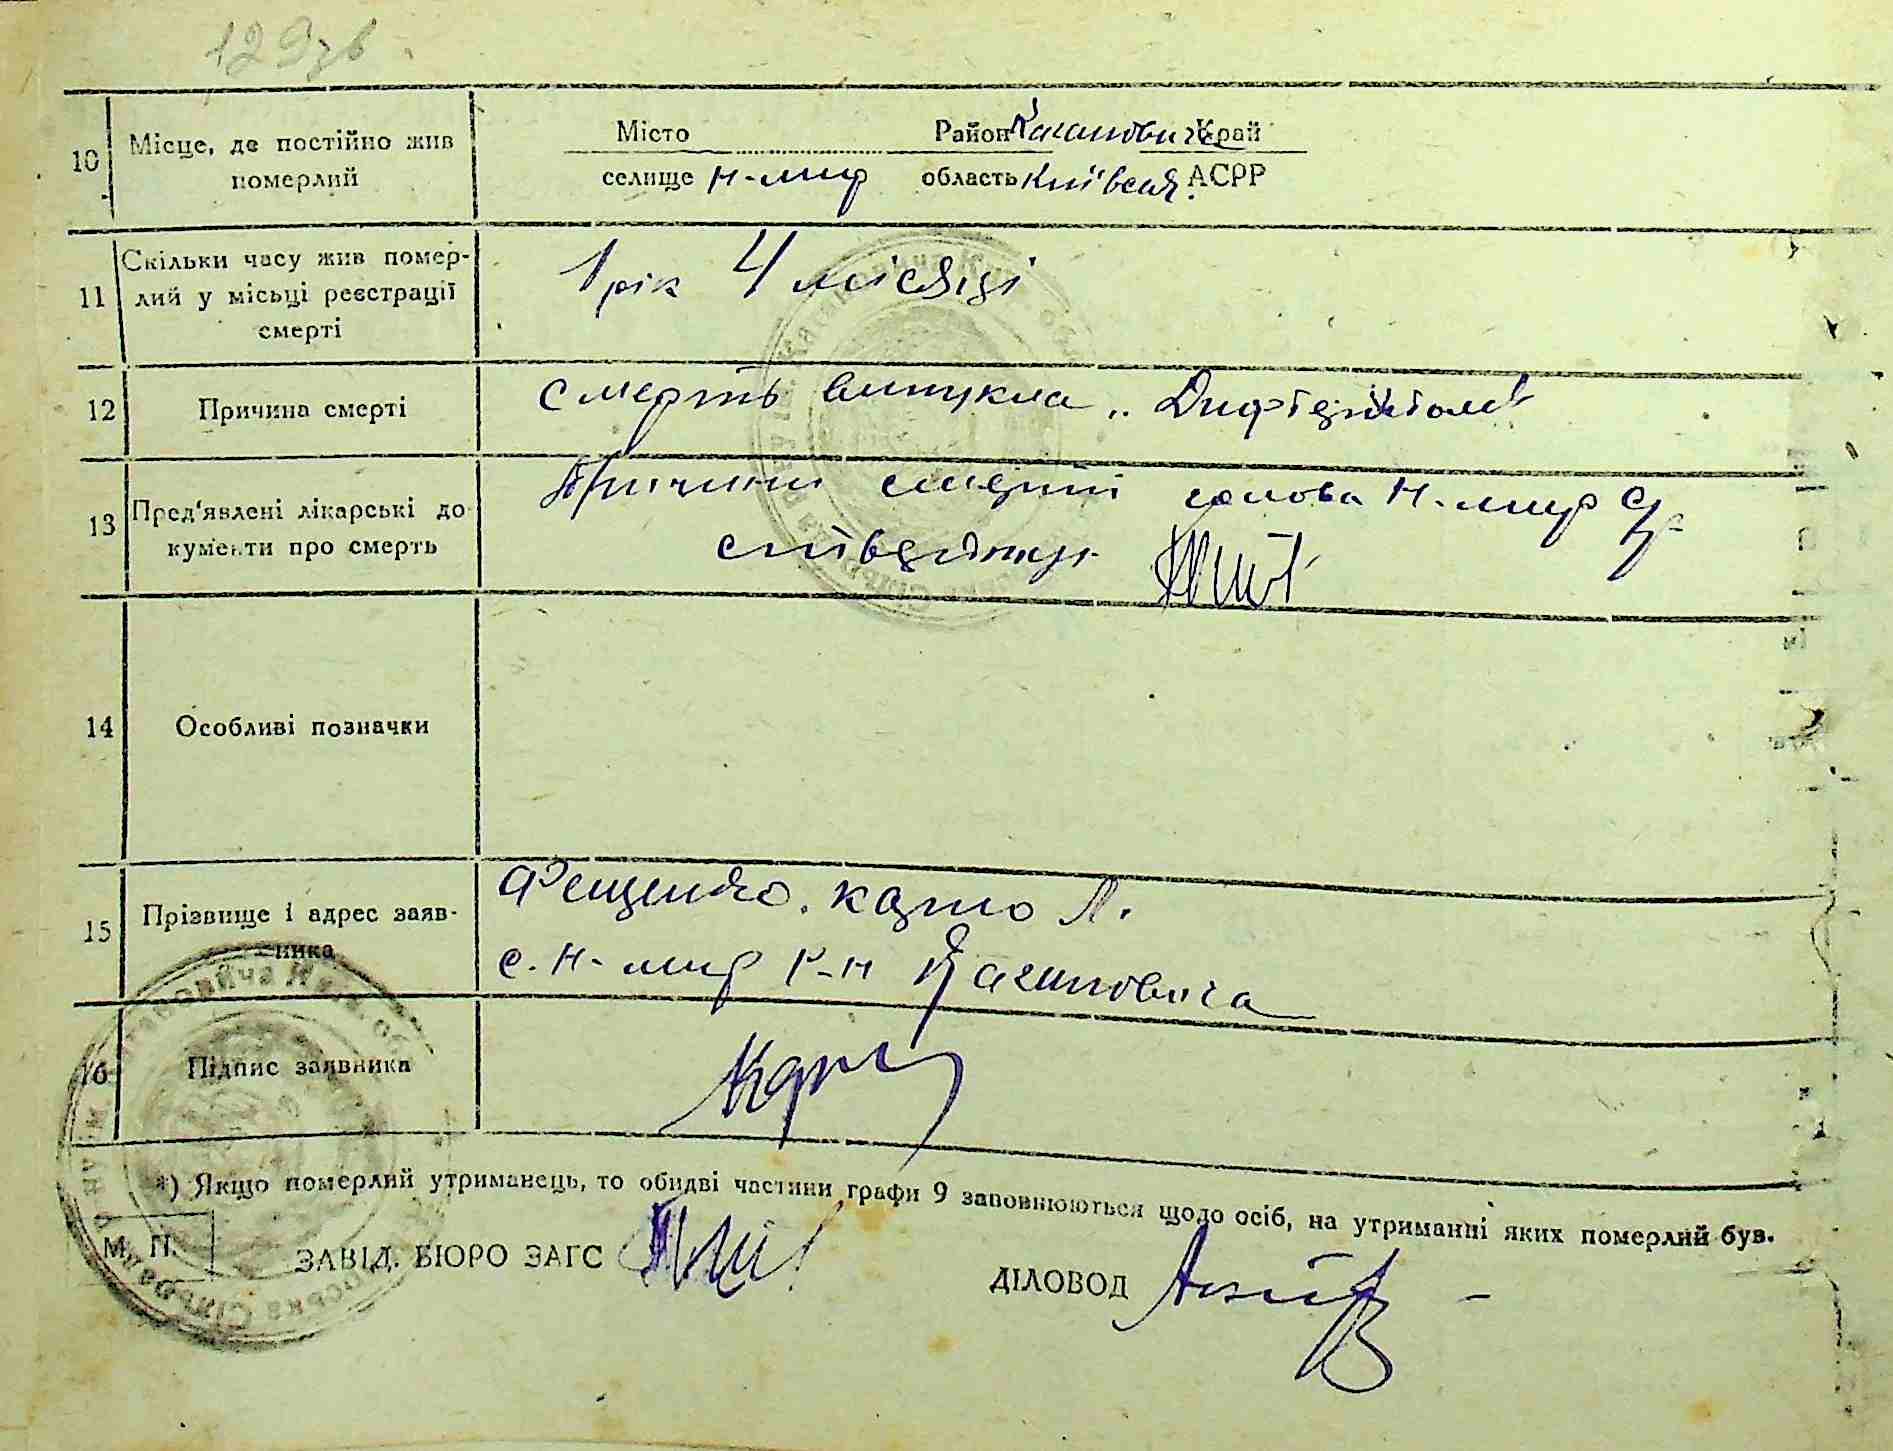 129зв.
10 Місце, де постійно жив померлий
Місто Район Кагановича Край
селище Н-мир область Київська АСРР
11 Скільки часу жив помер-
лий у місьці реєстрації
смерті
1 рік 4 місяці
12 Причина смерті
смерть випукла „Дифтерітом"
13 Пред'явлені лікарські до
кументи про смерть
Причини смерті голова Н-мир С/р
стверджує
14 Особливі позначки
15 Прізвище і адрес заяв-
ника
Фещенко. Карпо Л.
с. Н-мир р-н Кагановича
16 Підпис заявника
Карп
*) Якщо померлий утриманець, то обидві частини графи 9 заповнюються щодо осіб, на утриманні яких померлий був.
М. П.
ЗАВІД. БЮРО ЗАГС
ДІЛОВОД